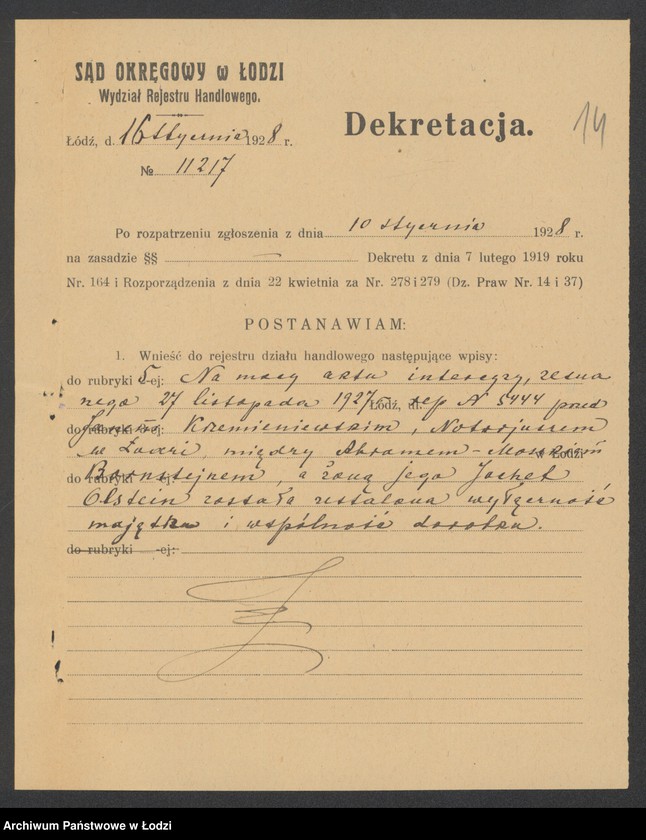 SĄD OKRĘGOWY w ŁODZI
Wydział Rejestru Handlowego.
Łódź, d. 16 stycznia 1928 r.
№ 11217
Dekretacja.
14
Po rozpatrzeniu zgłoszenia z dnia 10 stycznia 1928 r.
na zasadzie §§ — Dekretu z dnia 7 lutego 1919 roku
Nr. 164 i Rozporządzenia z dnia 22 kwietnia za Nr. 278 i 279 (Dz. Praw Nr. 14 i 37)
POSTANAWIAM:
1. Wnieść do rejestru działu handlowego następujące wpisy:
do rubryki 5-ej: Na mocy aktu intercyzy, zezna
nego 27 listopada 1927 Łódź, ul. rep № 5444 przed
do rubryki -ej: Krzemieniewskim, Notarjuszem
w Łodzi, między Abramem-Moszkiem w Łodzi
do rubryki -ej: Bornsztejnem, a żoną jego Jochet
Olstein została ustalona wyłączność
majątku i wspólność dorobku.
do rubryki -ej:
Archiwum Państwowe w Łodzi